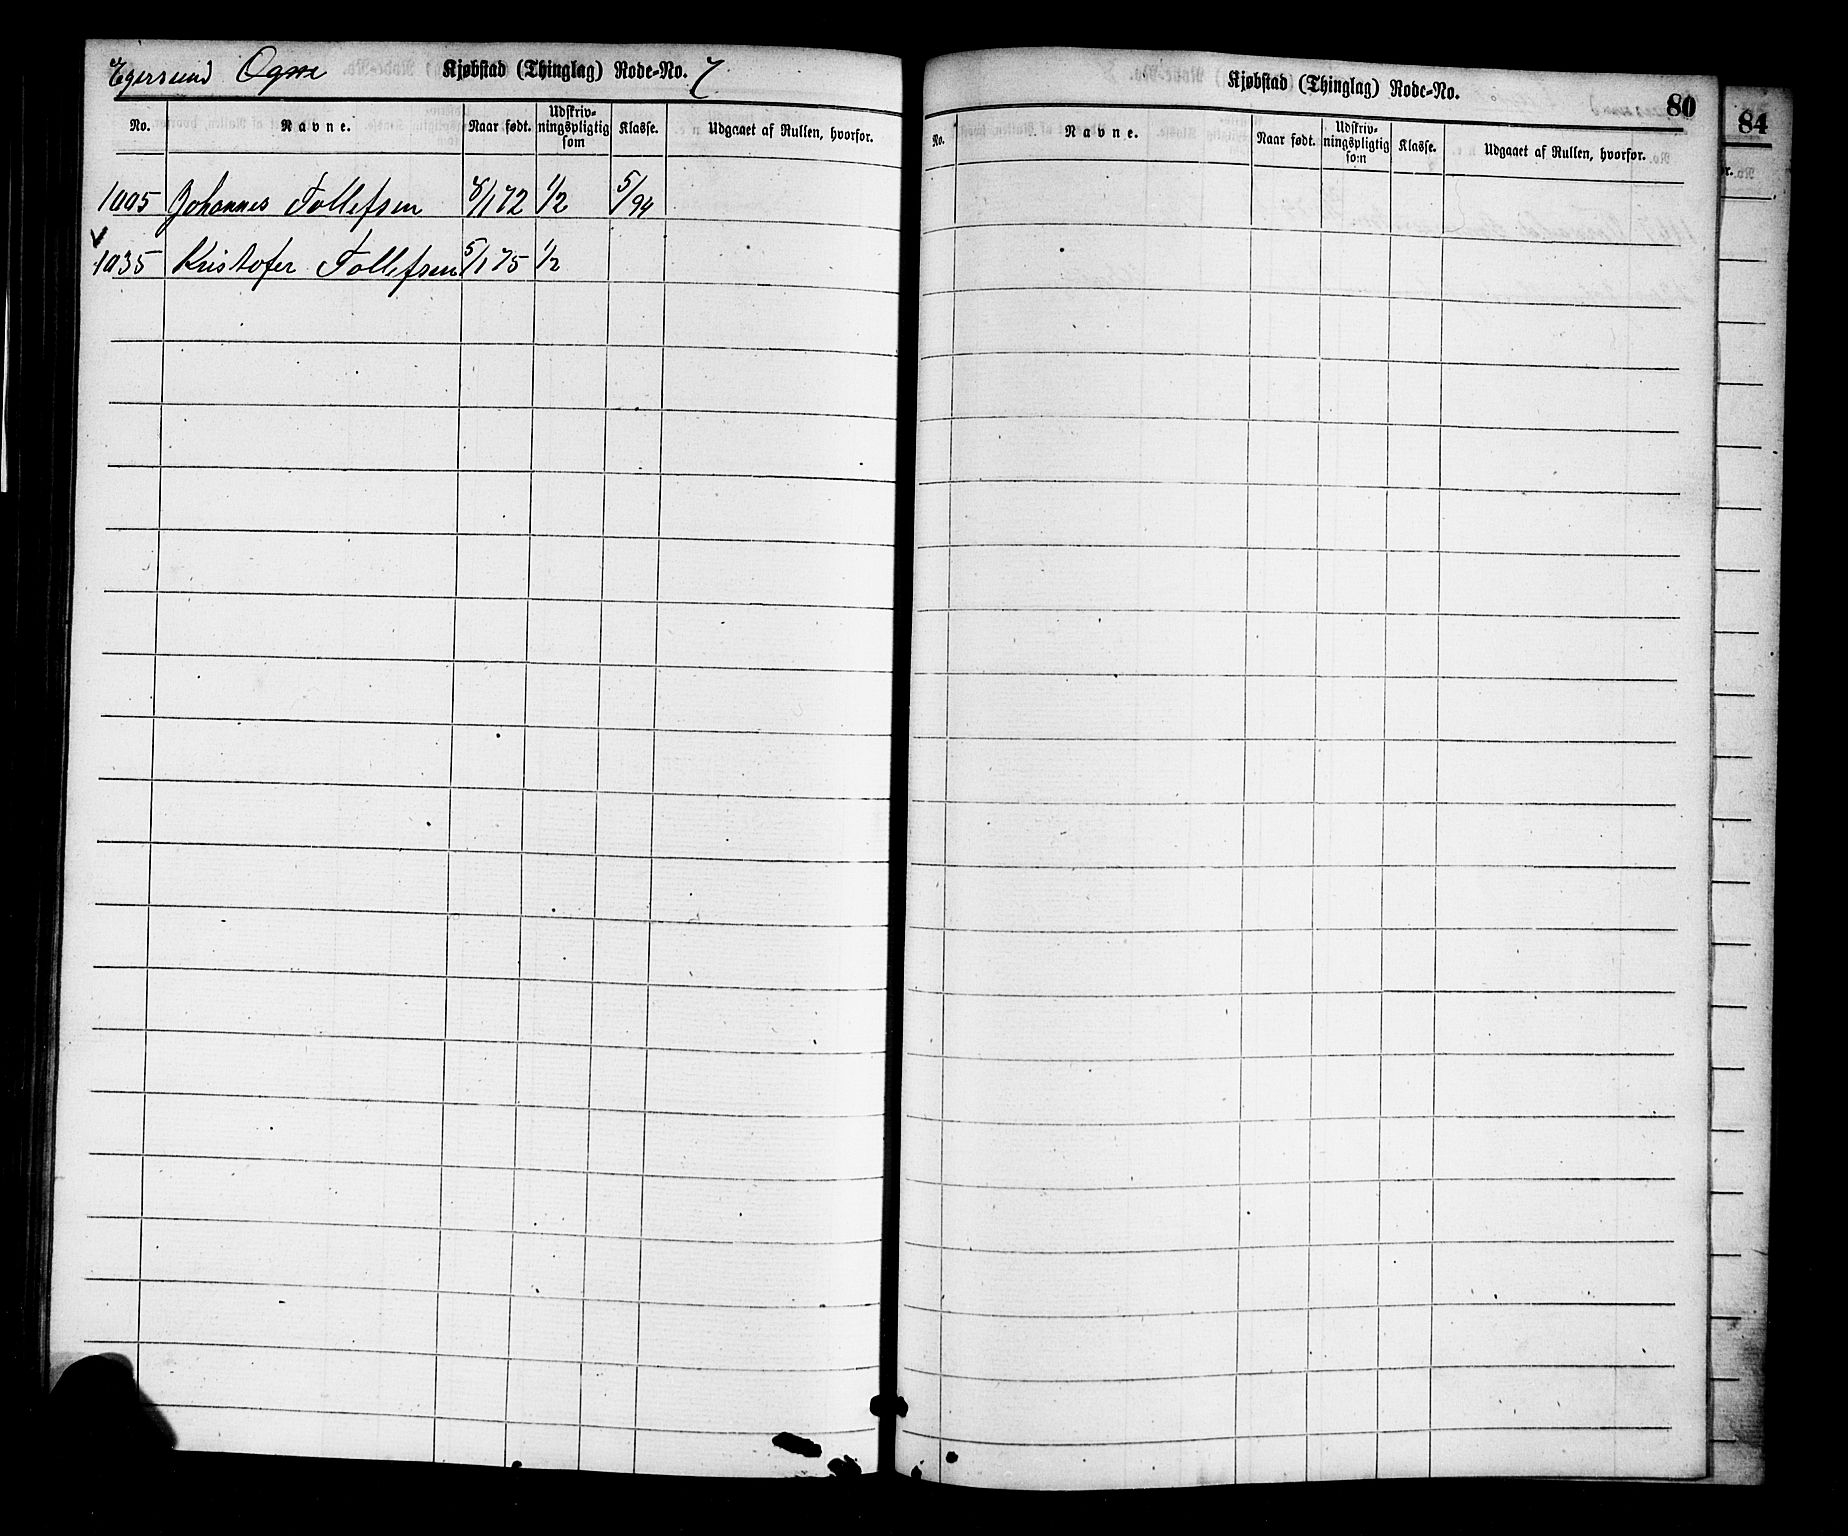 Egersund Ogne Kjøbstad (Thinglag) Rode-No. 7
No. Navne. Naar født. Udskriv-ningspligtig som Klasse. Udgaaet af Rullen, hvorfor.
1005 Johannes Tollefsen 8/1 72 1/2 5/94
1035 Kristofer Tollefsen 5/1 75 1/2
Kjøbstad (Thinglag) Rode-No.
80
No. Navne. Naar født. Udskriv-ningspligtig som Klasse. Udgaaet af Rullen, hvorfor.
84